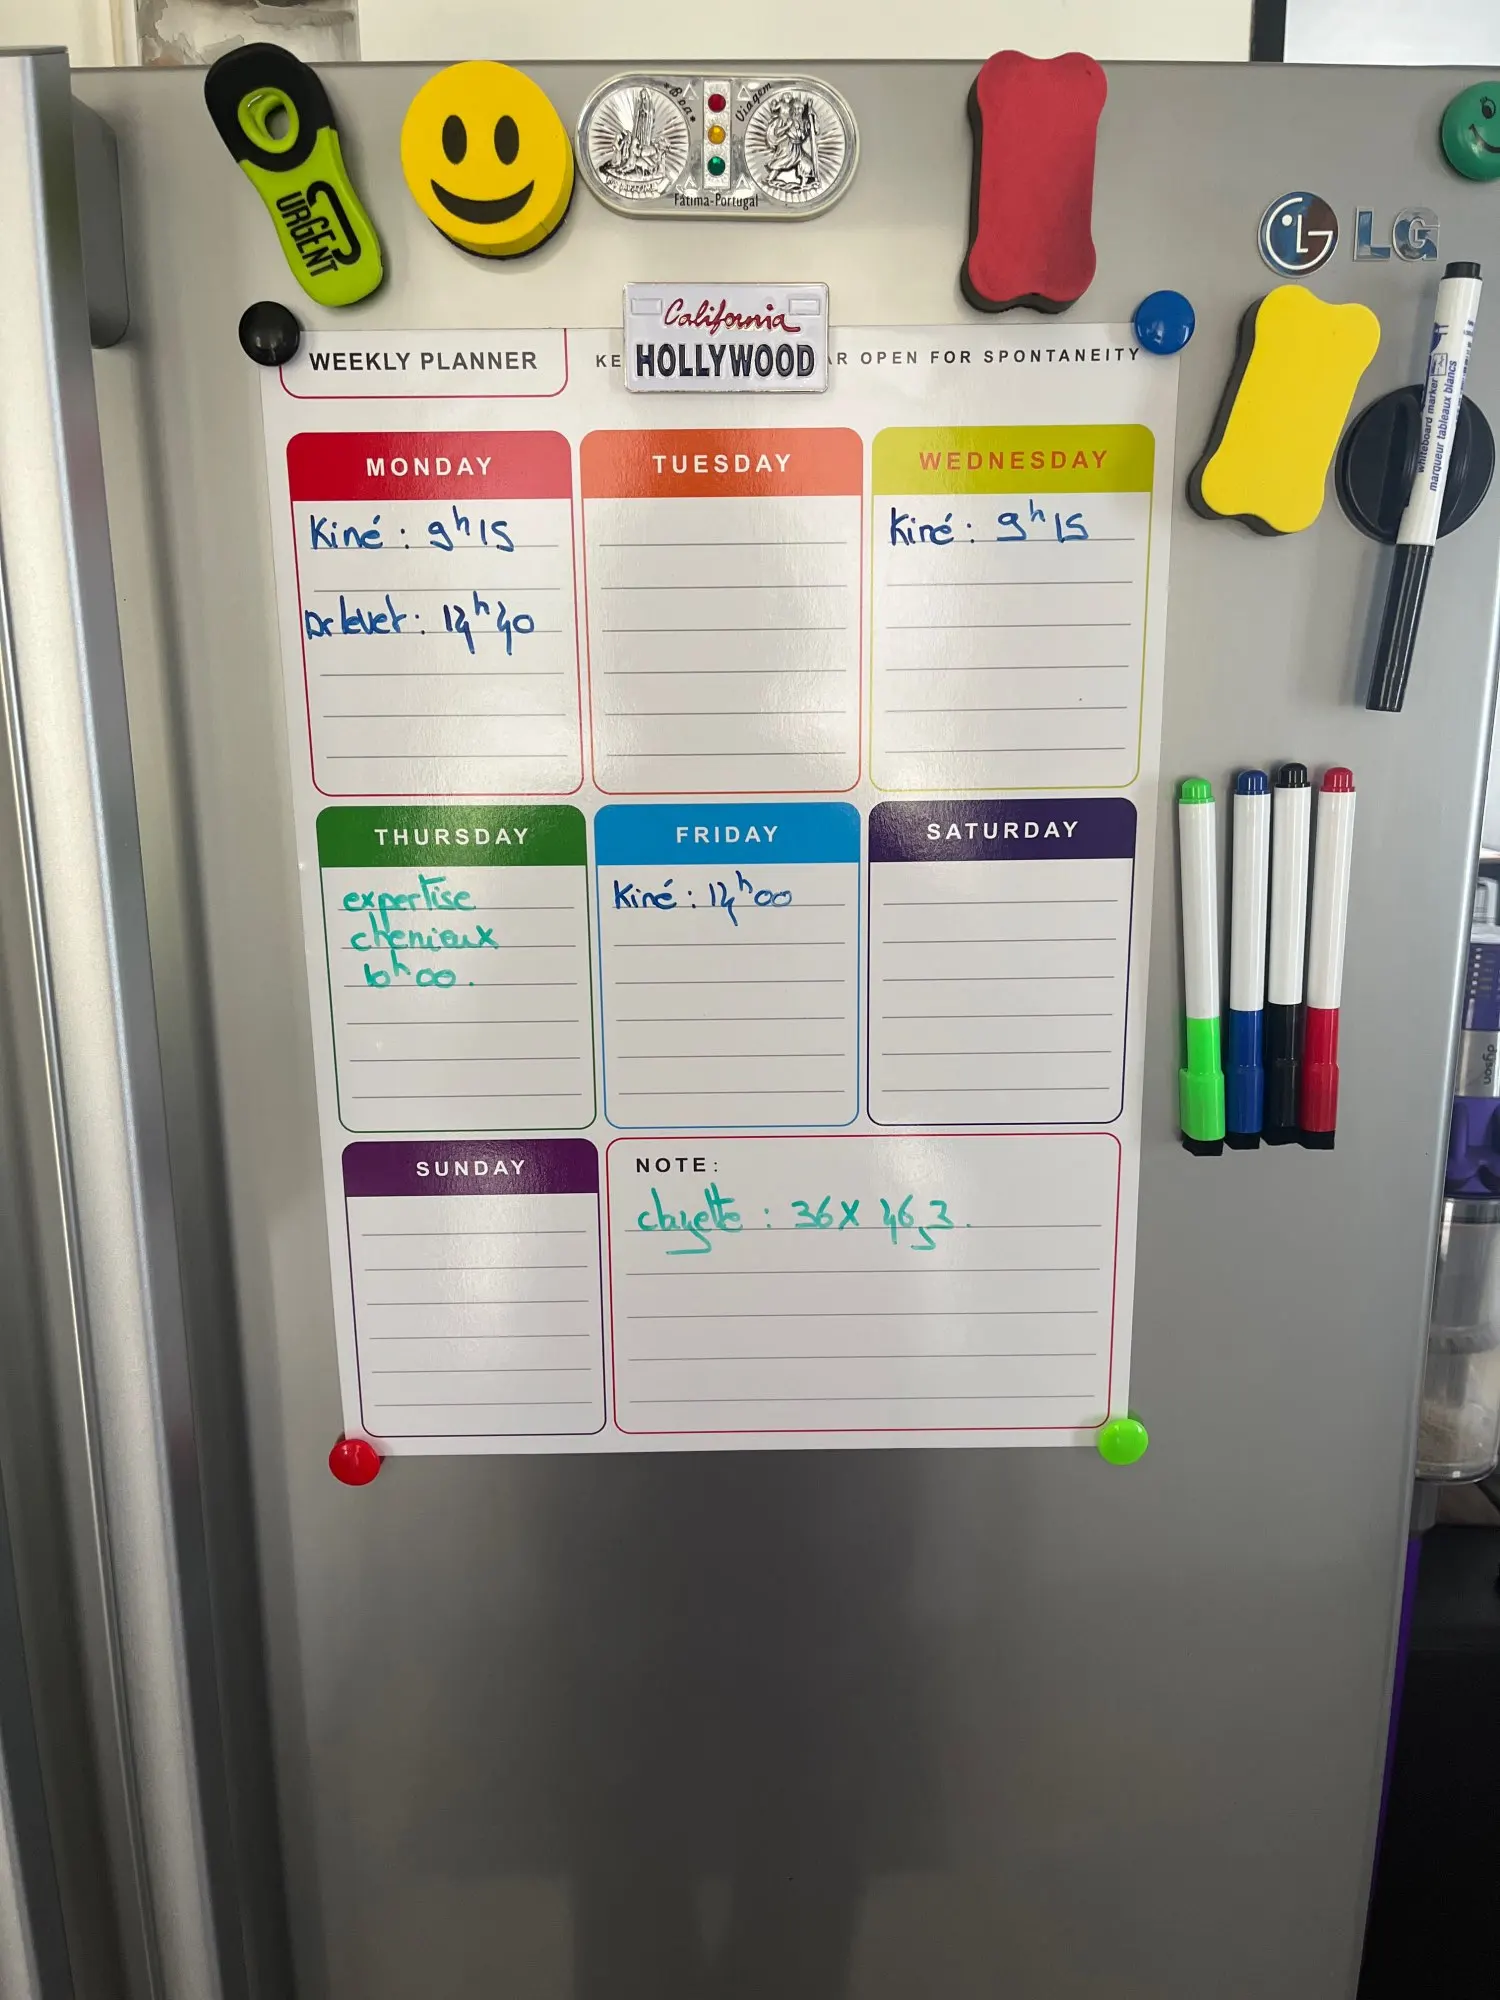 URGENT
Boa Viagem
Fátima-Portugal
LG
California
HOLLYWOOD
WEEKLY PLANNER
KE AR OPEN FOR SPONTANEITY
whiteboard marker
marqueur tableaux blancs
MONDAY
Kiné : 9h15
Dr levet : 14h40
TUESDAY
WEDNESDAY
Kiné : 9h15
THURSDAY
expertise
chenieux
10h00.
FRIDAY
Kiné : 14h00
SATURDAY
SUNDAY
NOTE:
clayette : 36X 46,3.
dyson